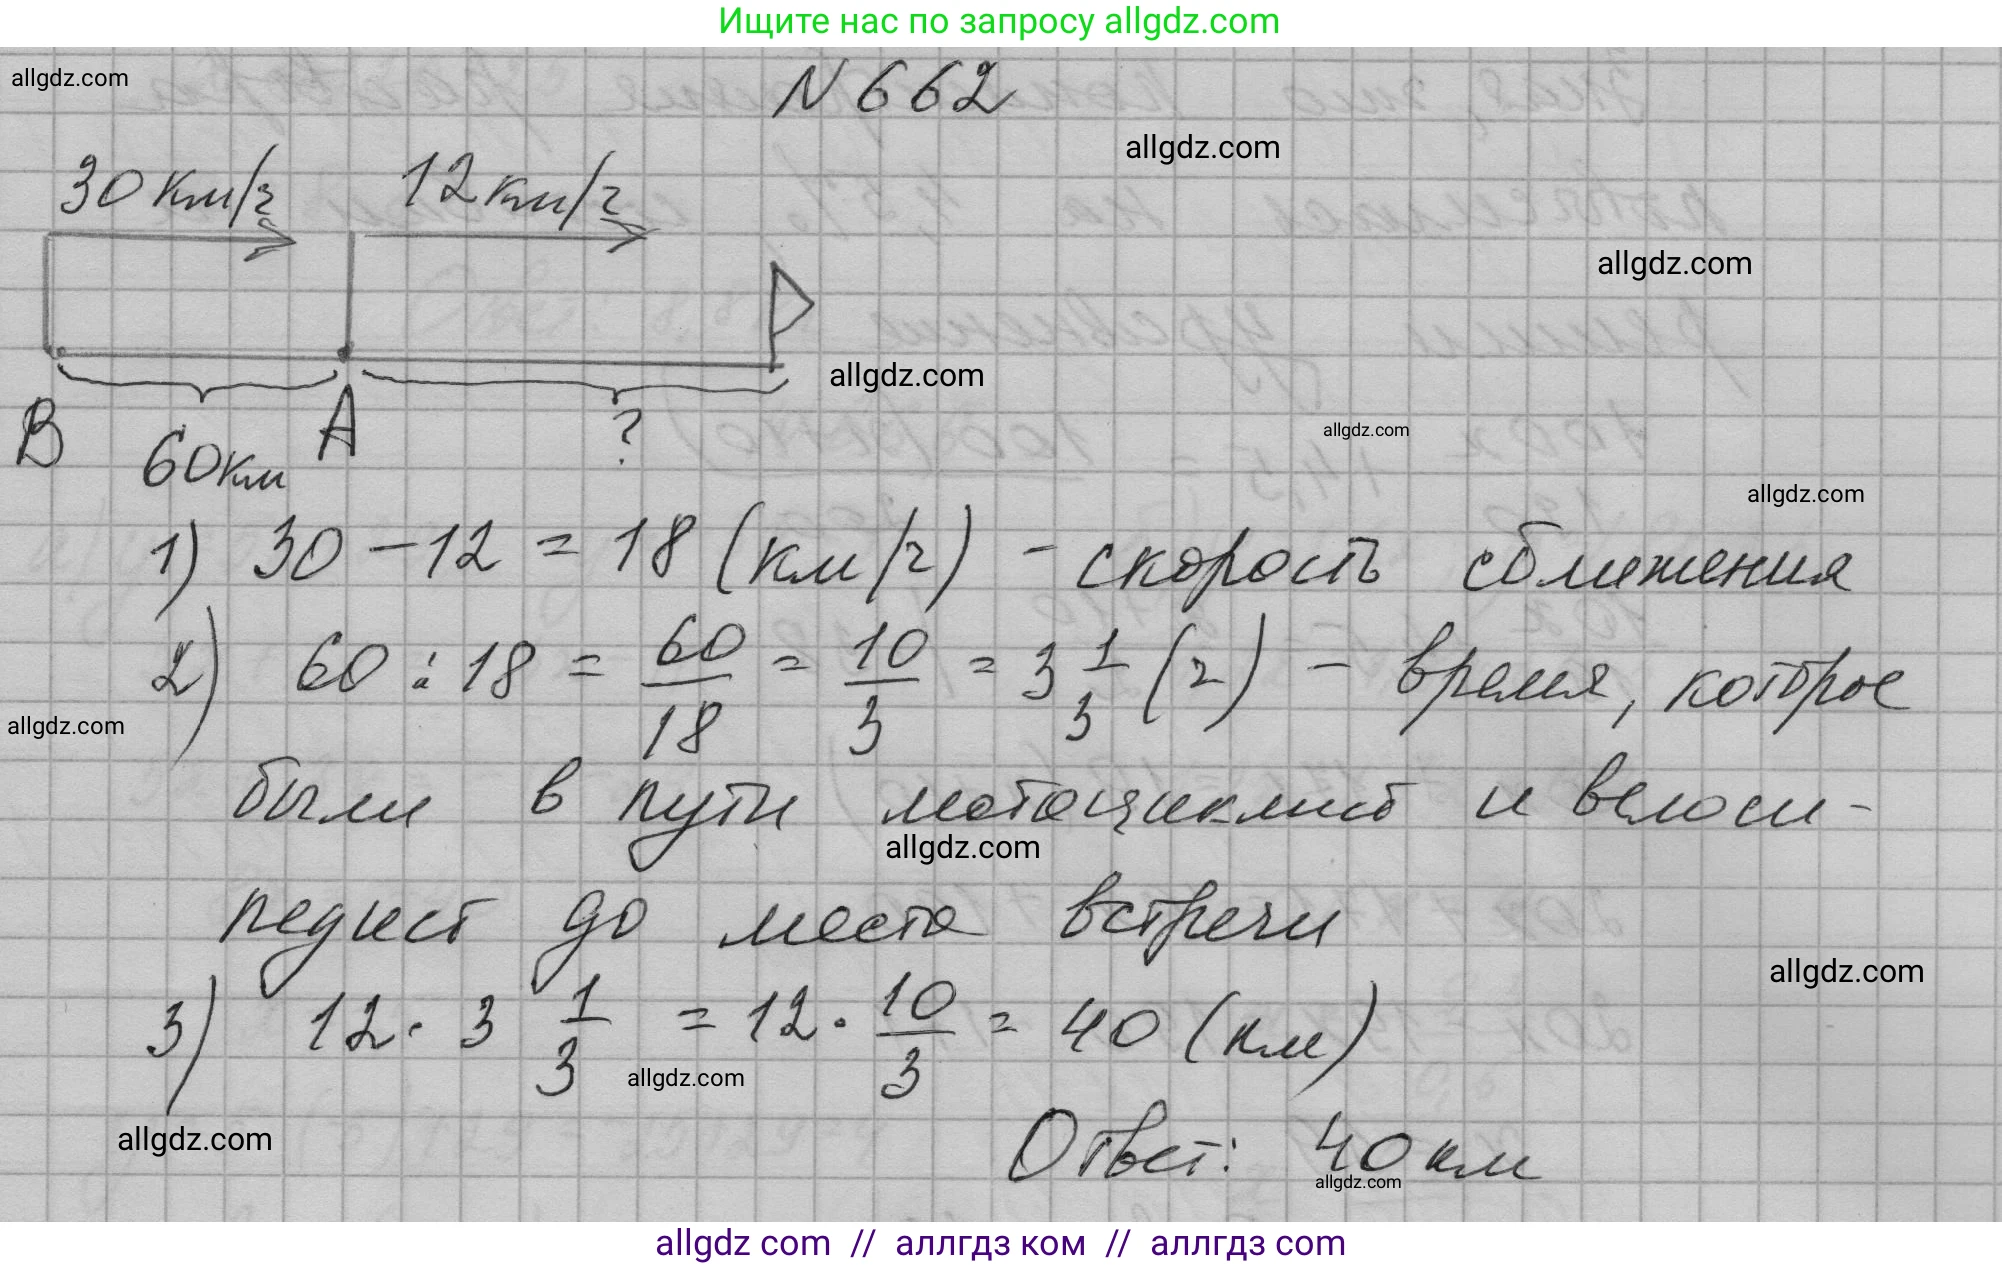 Ищите нас по запросу allgdz.com
allgdz.com
N 662
allgdz.com
30 км/ч 12 км/ч
allgdz.com
allgdz.com
B 60км A ?
allgdz.com
allgdz.com
1) 30 - 12 = 18 (км/ч) - скорость сближения
2) 60 : 18 = 60/18 = 10/3 = 3 1/3 (ч) - время, которое
allgdz.com
были в пути мотоциклист и велоси-
allgdz.com
педист до места встречи
allgdz.com
3) 12 · 3 1/3 = 12 · 10/3 = 40 (км)
allgdz.com
allgdz.com
Ответ: 40 км
allgdz.com
allgdz com // аллгдз ком // аллгдз com